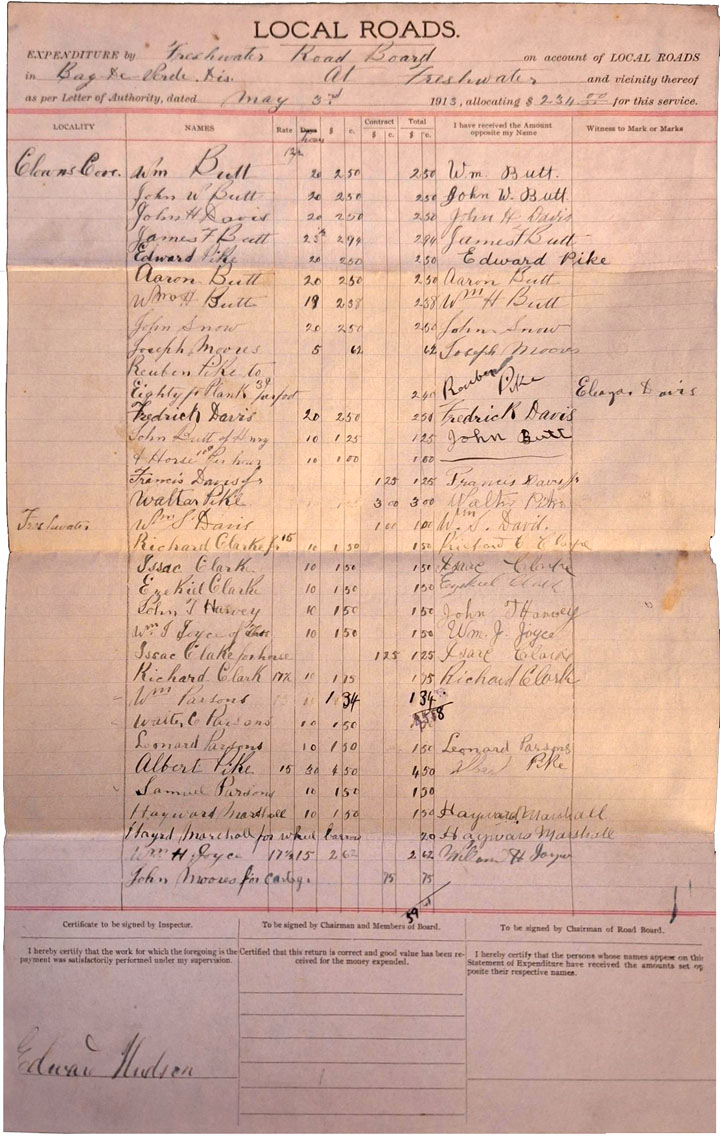 LOCAL ROADS.
EXPENDITURE by Freshwater Road Board on account of LOCAL ROADS
in Bay-de-Verde Dis. At Freshwater and vicinity thereof
as per Letter of Authority, dated May 3rd 1913, allocating $ 234.00 for this service.
LOCALITY NAMES Rate Days hours $ c. Contract $ c. Total $ c. I have received the Amount opposite my Name Witness to Mark or Marks
12½
Clowns Cove. Wm Butt 20 2 50 2 50 Wm. Butt.
John W Butt 20 2 50 2 50 John W. Butt.
John H Davis 20 2 50 2 50 John H Davis
James F Butt 23½ 2 94 2 94 James F Butt
Edward Pike 20 2 50 2 50 Edward Pike
Aaron Butt 20 2 50 2 50 Aaron Butt
Wm H Butt 19 2 38 2 38 Wm H Butt
John Snow 20 2 50 2 50 John Snow
Joseph Moores 5 62 62 Joseph Moores
Reuben Pike to
Eighty ft Plank 3¢ per foot 2 40 Reuben Pike Eleazar Davis
Fredrick Davis 20 2 50 2 50 Fredrick Davis
John Butt of Hnry 10 1 25 1 25 John Butt
& Horse 10 Per hour 10 1 00 1 00
Francis Davis Jr 1 25 1 25 Francis Davis Jr
Waltar Pike 3 00 3 00 Walter Pike
Freshwater Wm S. Davis 1 00 1 00 Wm S. David.
Richard Clarke Jr 15 10 1 50 1 50 Richard C Clarke
Issac Clark 10 1 50 1 50 Isaac Clarke
Ezekiel Clarke 10 1 50 1 50 Ezekiel Clark
John T Harvey 10 1 50 1 50 John T Harvey
Wm J Joyce of Thos 10 1 50 1 50 Wm. J. Joyce
Issac Clake for horse 1 25 1 25 Isaac Clarke
Richard Clark 17½ 10 1 75 1 75 Richard Clark
Wm Parsons 1 34 1 34
Walter C Parsons 10 1 50
Leonard Parsons 10 1 50 1 50 Leonard Parsons
Albert Pike 15 30 4 50 4 50 Albert Pike
Samuel Parsons 10 1 50 1 50
Hayward Marshall 10 1 50 1 50 Hayward Marshall
Hayrd Marchall for wheel barrow 20 Hayward Marshall
Wm H Joyce 17½ 15 2 62 2 62 William H Joyce
John Moores for cartage 75 75
Certificate to be signed by Inspector. To be signed by Chairman and Members of Board. To be signed by Chairman of Road Board.
I hereby certify that the work for which the foregoing is the payment was satisfactorily performed under my supervision.
Certified that this return is correct and good value has been received for the money expended.
I hereby certify that the persons whose names appear on this Statement of Expenditure have received the amounts set opposite their respective names.
Edward Hudson